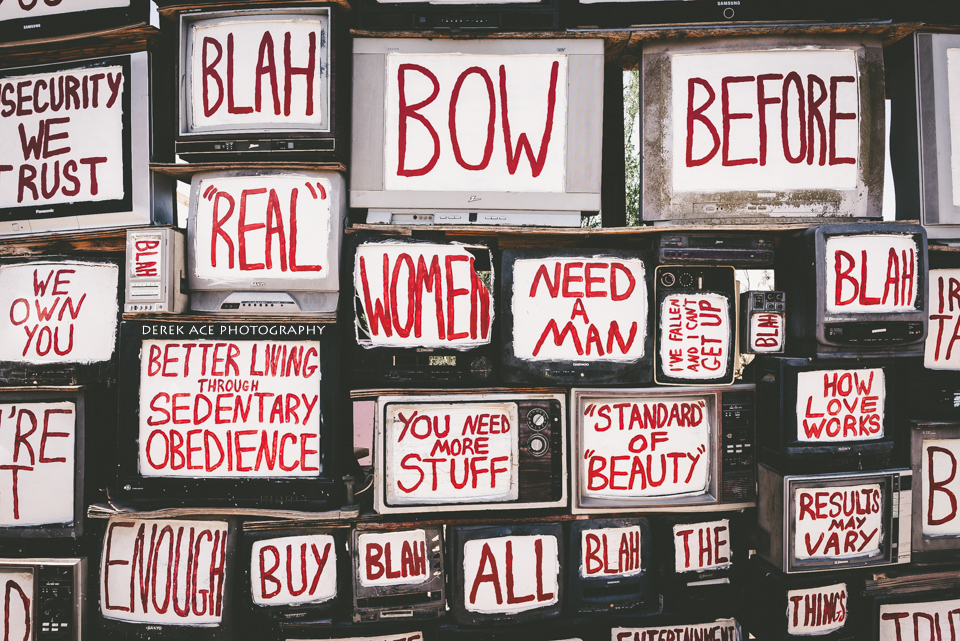 SAMSUNG
SECURITY
WE
TRUST
Panasonic
BLAH
BOW
BEFORE
"REAL"
BLAH
WE
OWN
YOU
WOMEN
NEED
A
MAN
I'VE FALLEN
AND I CAN'T
GET UP
BLAH
BLAH
DEREK ACE PHOTOGRAPHY
BETTER LIVING
THROUGH
SEDENTARY
OBEDIENCE
YOU NEED
MORE
STUFF
"STANDARD"
OF
"BEAUTY"
HOW
LOVE
WORKS
'RE
T
RESULTS
MAY
VARY
B
ENOUGH
SANYO
BUY
BLAH
ALL
BLAH
THE
THINGS
D
ENTERTAINMENT